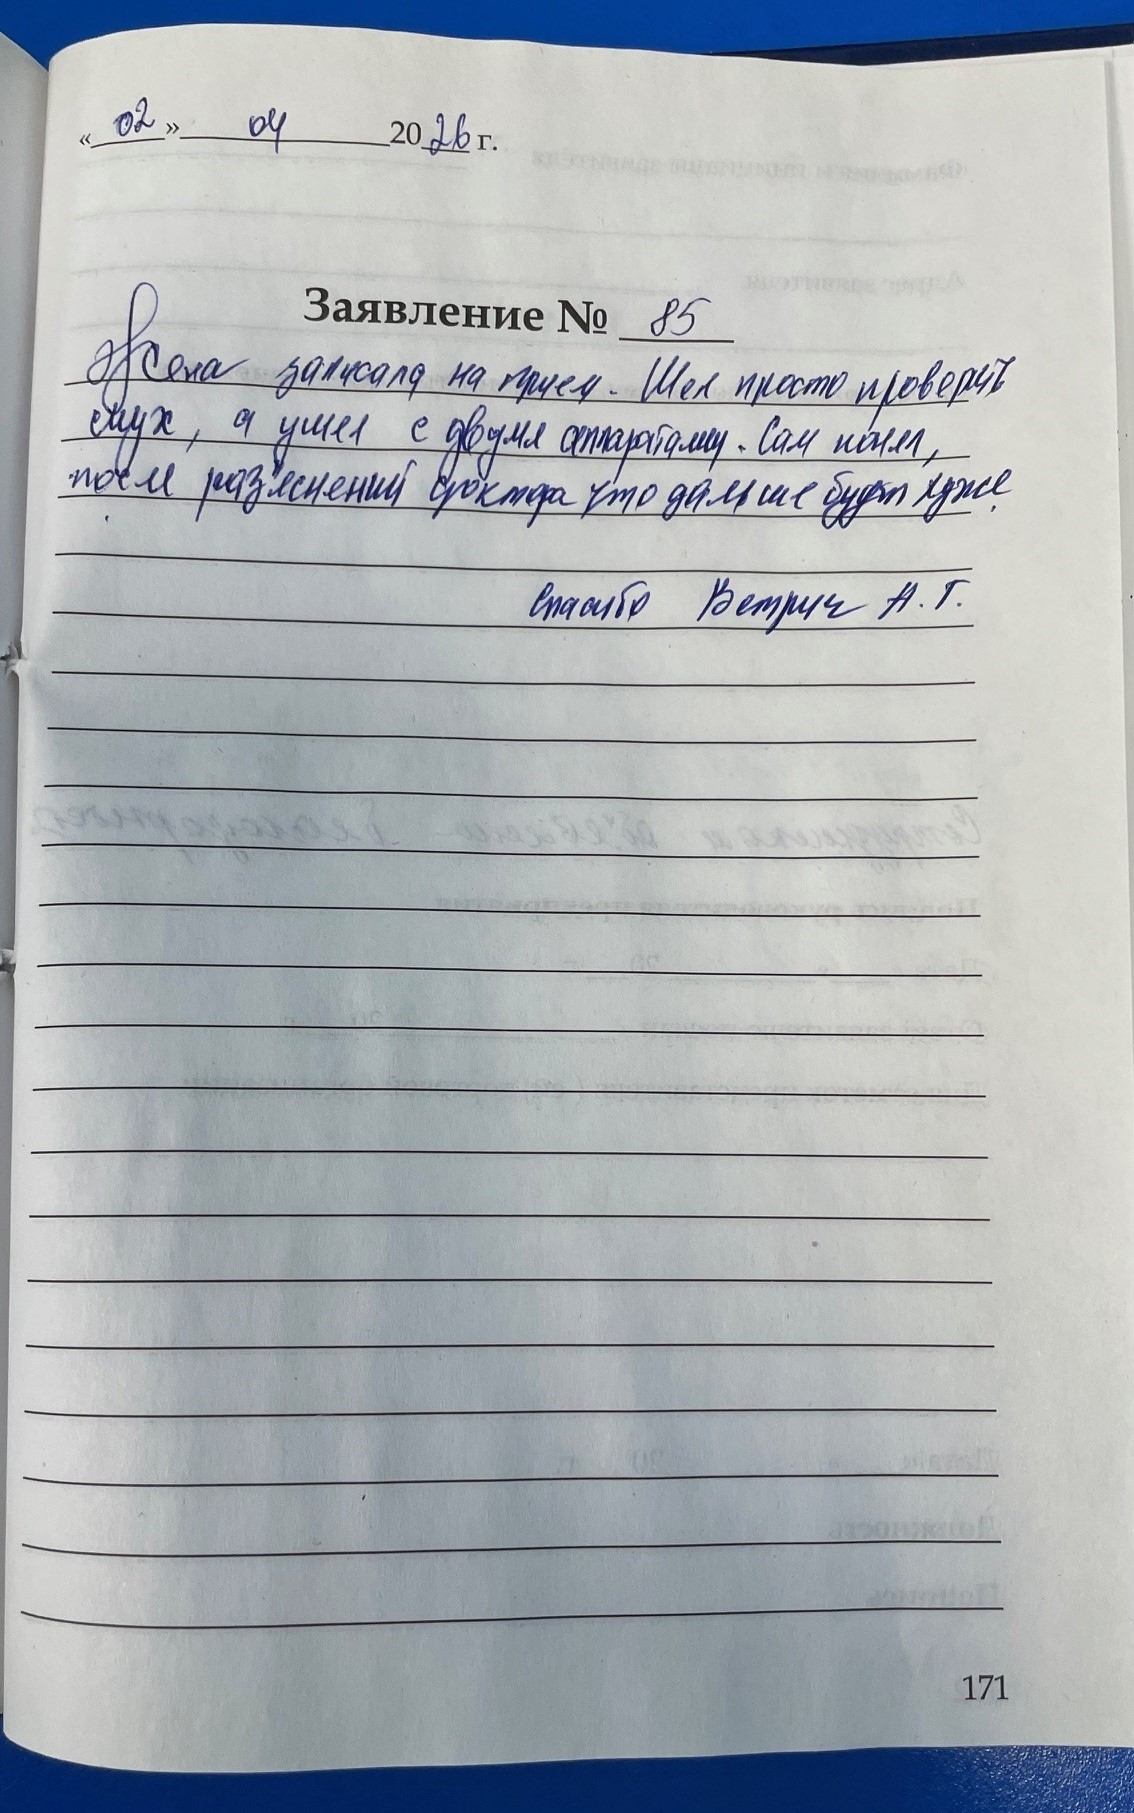 «02» 04 2026 г.
Заявление № 85
Жена записала на прием. Шел просто проверить
слух, а ушел с двумя аппаратами. Сам понял,
после раз'яснений доктора что дальше будет хуже.
Спасибо Ветрич А. Г.
171